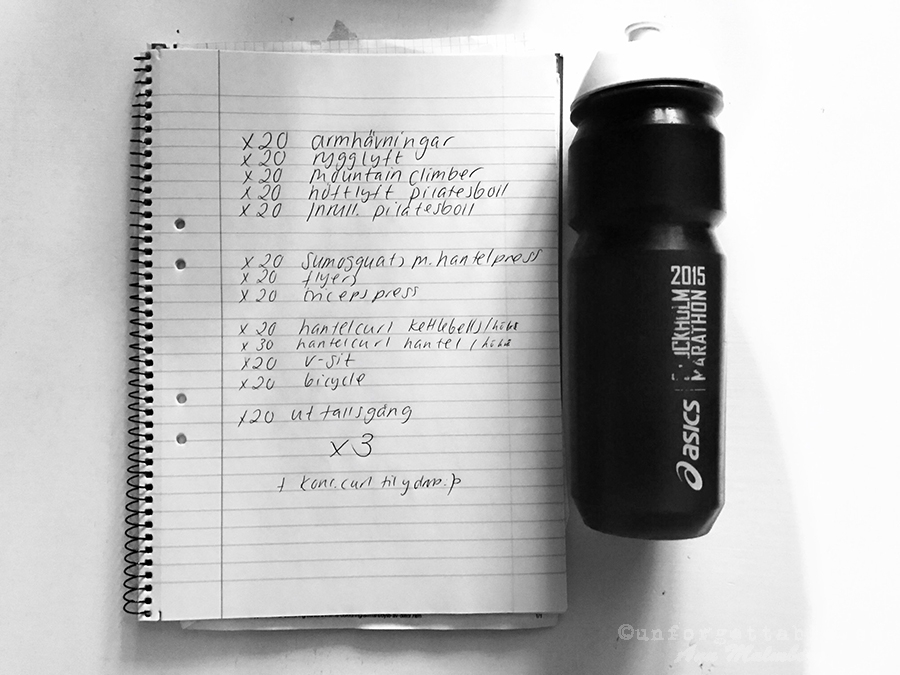 x 20 armhävningar
x 20 rygglyft
x 20 mountain climber
x 20 höftlyft pilatesboll
x 20 Inrull. pilatesboll
x 20 sumosquats m. hantelpress
x 20 flyers
x 20 tricepspress
x 20 hantelcurl kettlebells/
x 30 hantelcurl hantel /
x20 v-sit
x20 bicycle
x20 utfallsgång
x3
+ konc.curl till
2015
MARATHON
asics
©unforgettab